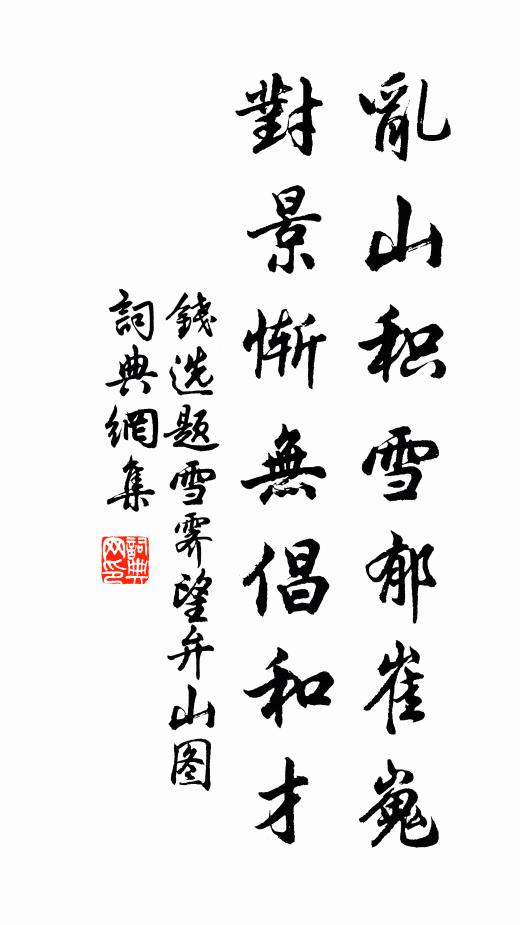 亂山积雪郁崔嵬
對景惭無倡和才
錢选题雪霁望弁山图
詞典網集
詞典网印